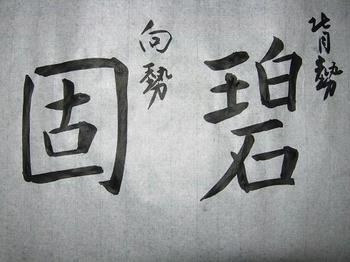 背勢
碧
向勢
固